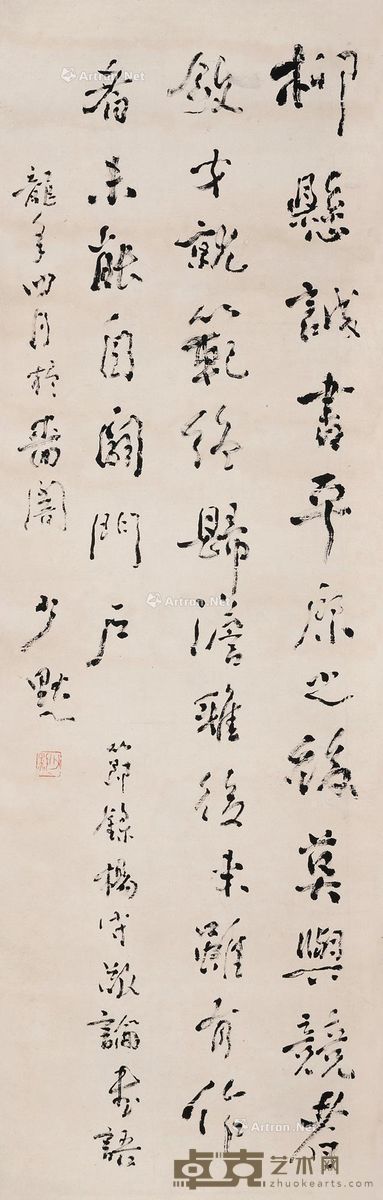 柳懸誠書平原之莫與競者
斂才就範終歸澹雅後來雖有作
者未能自闢門户 節錄楊守敬論書語
龍年四月於閣 少默
Artron.Net
Artron.Net
Artron.Net
卓克艺术网
zhuokearts.com